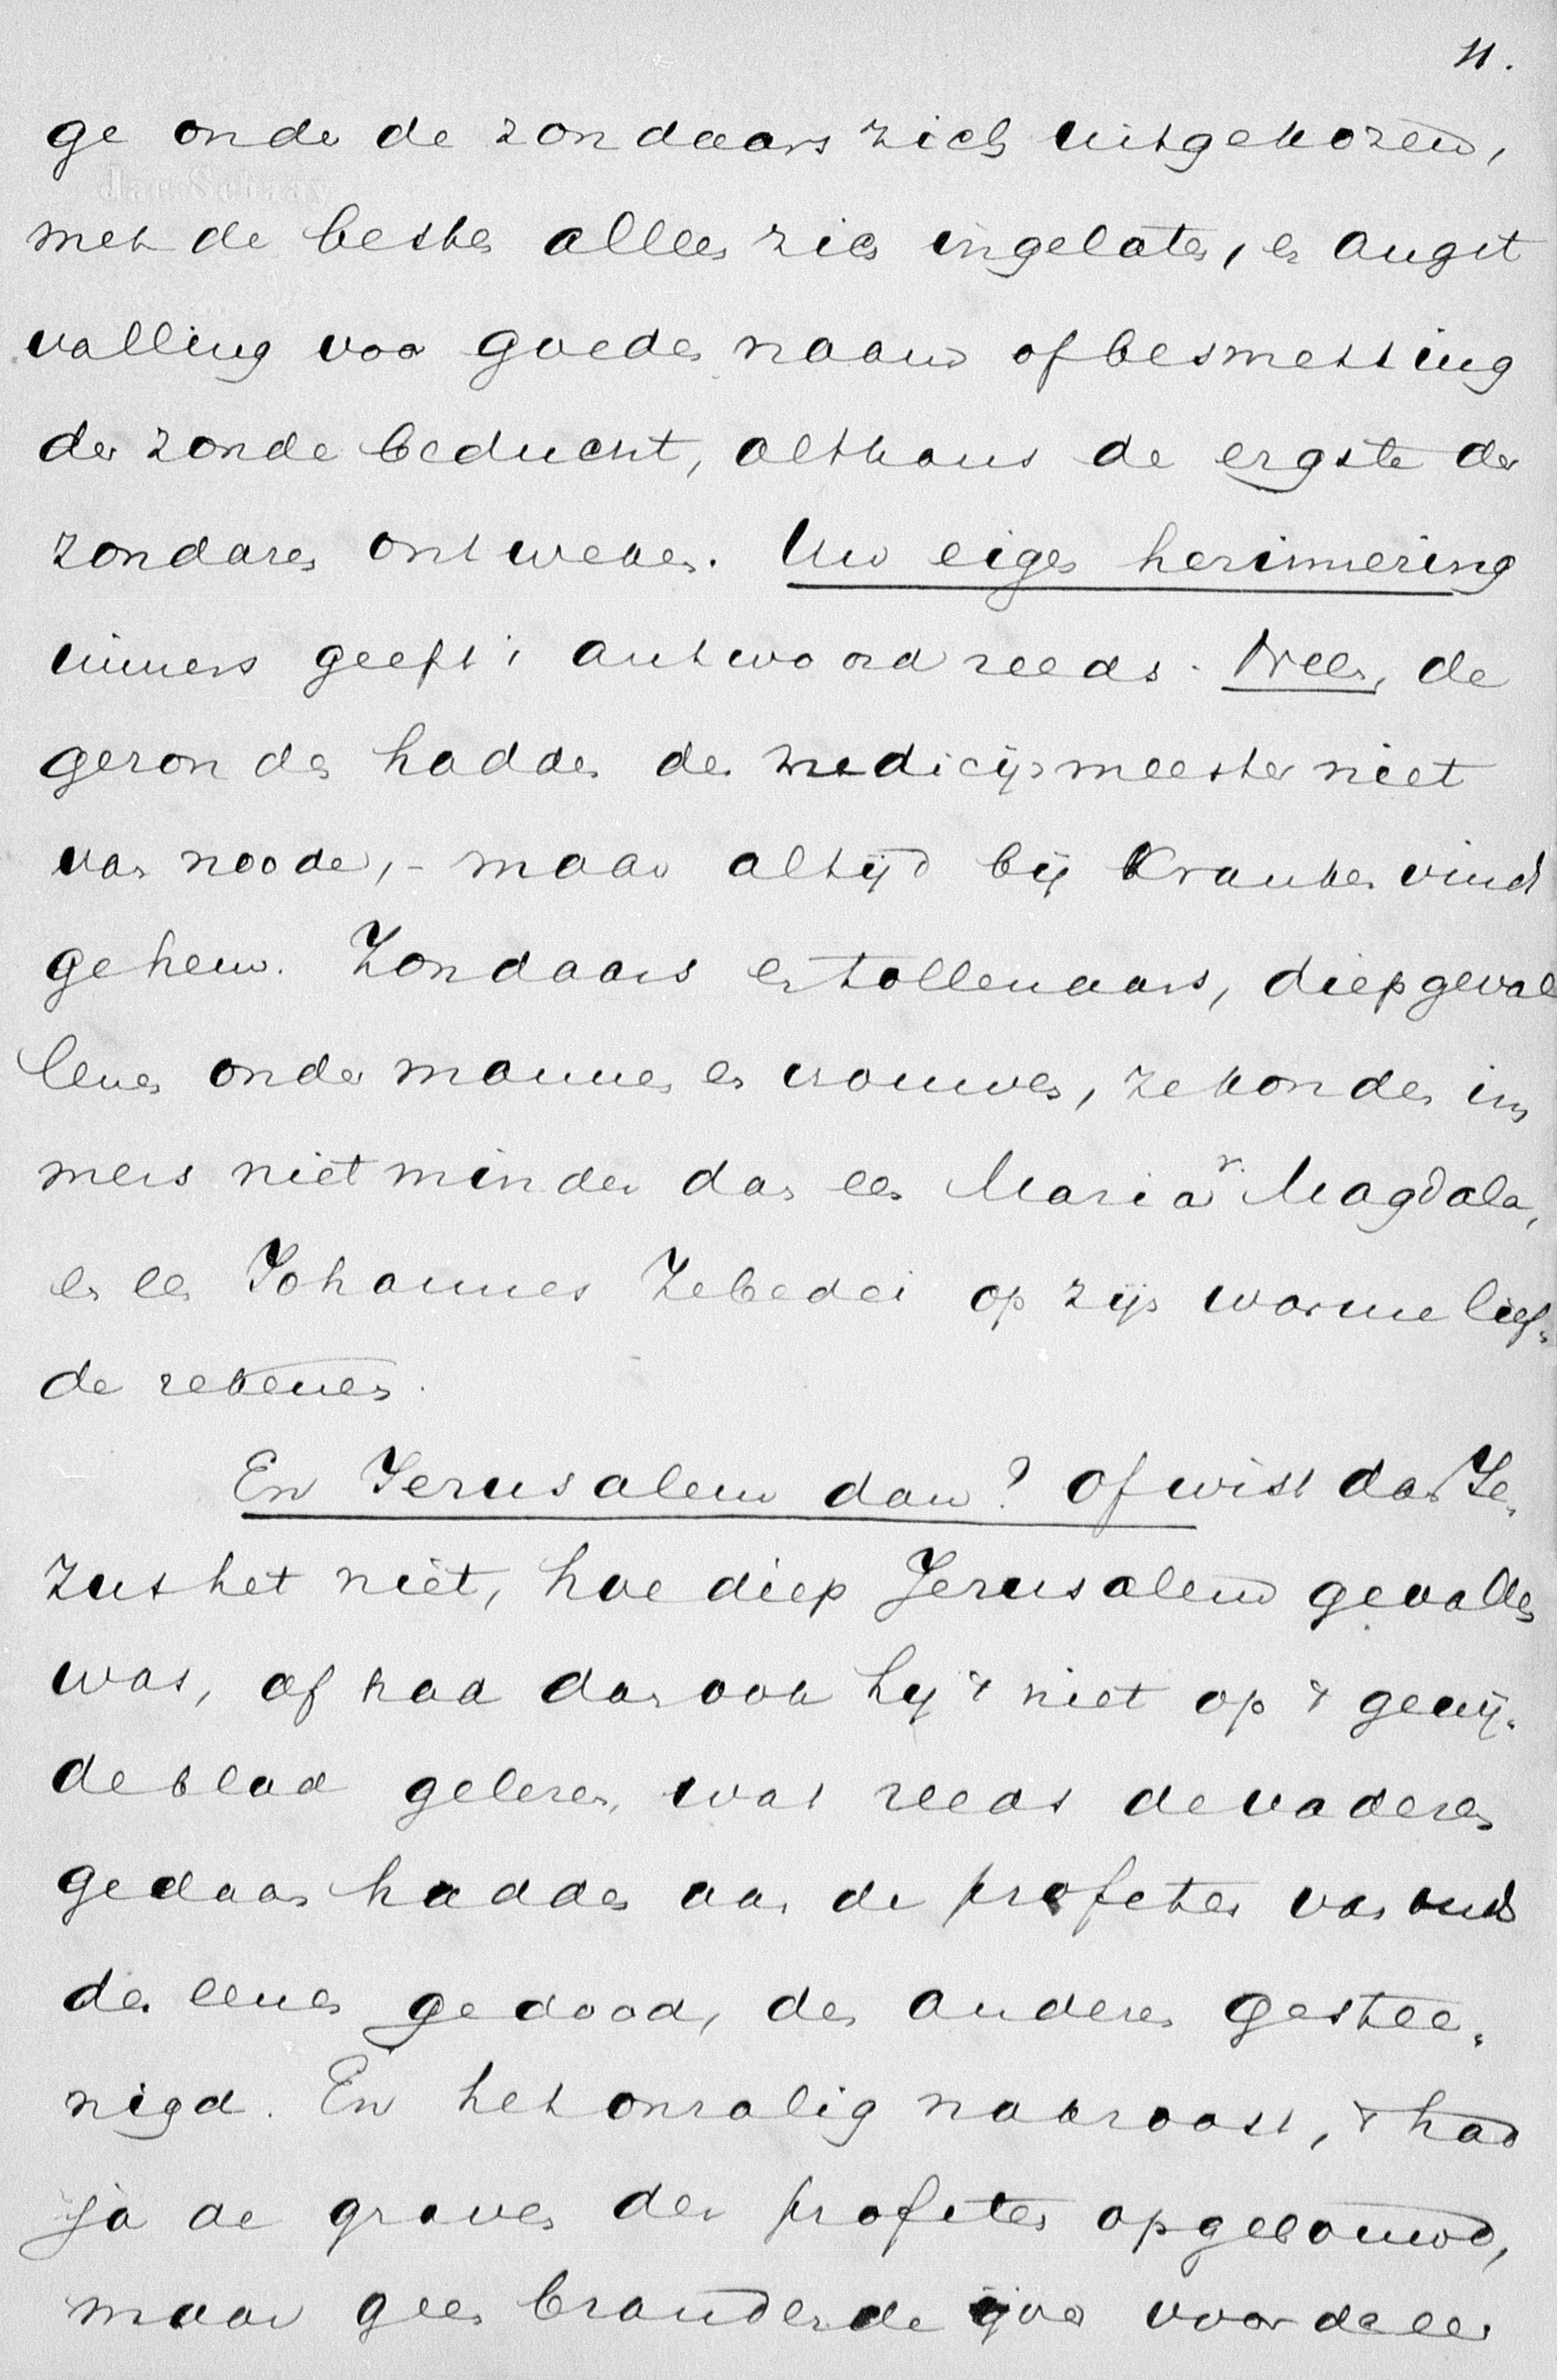 11.
ge onder de zondaars zich uitgekozen,
met de besten alleen zich ingelaten, en angst
vallig voor goeden naam of besmetting
der zonde beducht, althans de ergste der
zondaren ontweken. Uw eigen herinnering
immers geeft 't antwoord reeds. Neen, de
gezonden hadden den medicijnmeester niet
van noode, - maar altijd bij kranken vindt
ge hem. Zondaars en tollenaars, diep geval
lenen onder mannen en vrouwen, ze konden im
mers niet minder dan een Maria v. Magdala,
en een Johannes Zebedei op zijn warme lief-
de rekenen.
En Jerusalem dan? Of wist dan Je-
zus het niet, hoe diep Jerusalem gevallen
was, of had dan ook hij 't niet op 't gewij-
de blad gelezen, wat reeds de vaderen
gedaan hadden aan de profeten van ouds
den eenen gedood, den anderen gestee-
nigd. En het onzalig nakroost, 't had
ja de graven der profeten opgebouwd,
maar geen brandende ijver voor de eer